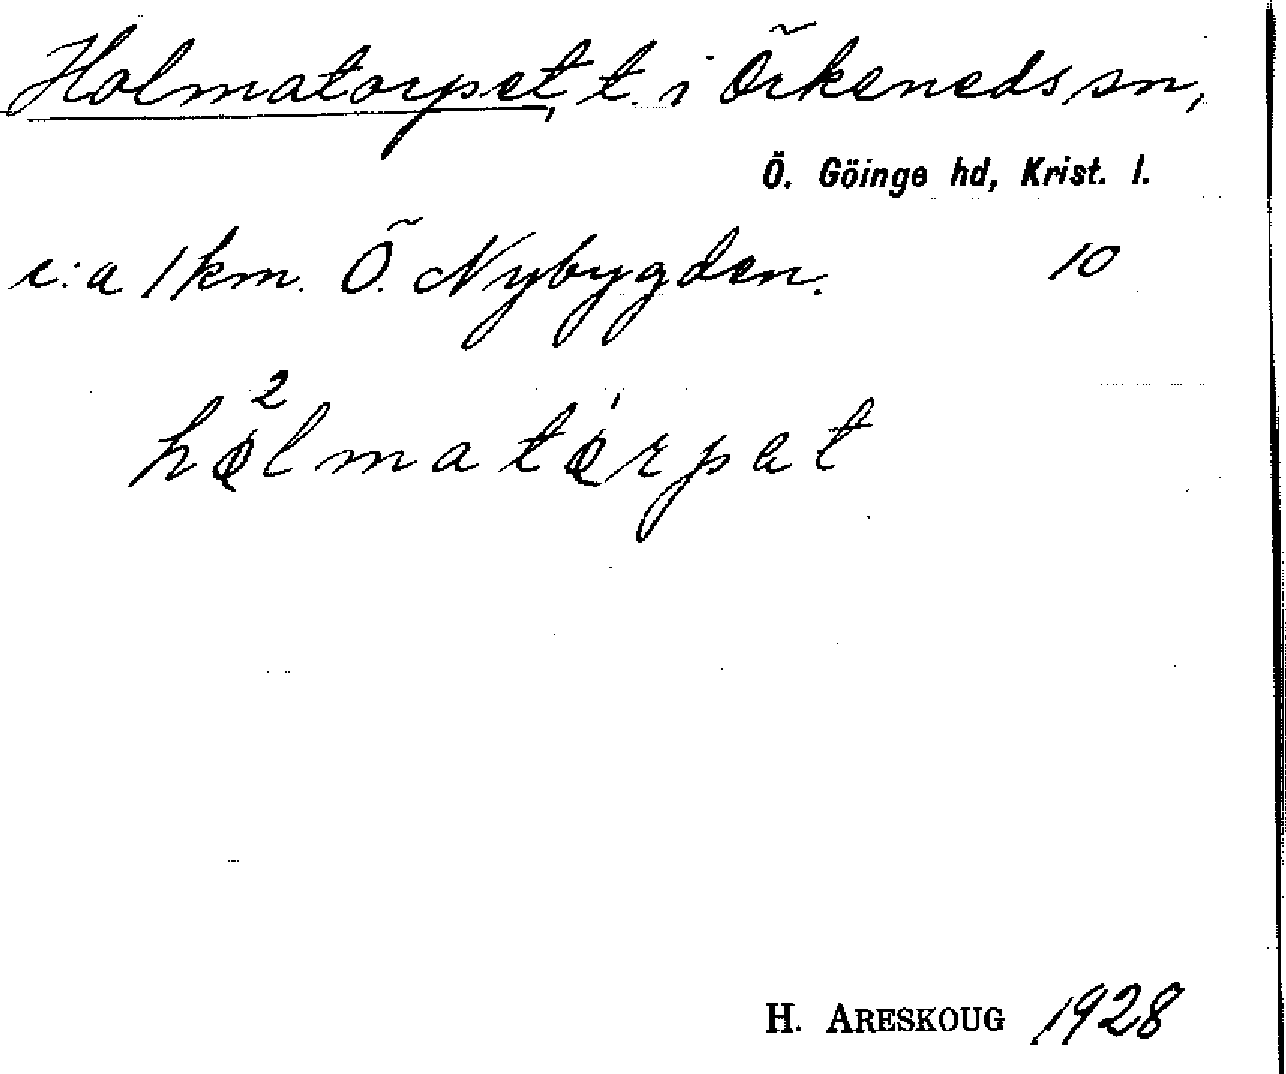 Holmatorpet, t. i Örkeneds sn,
Ö. Göinge hd, Krist. l.
c:a 1 km. Ö. Nybygden. 10
hø²lmatø'rpat
H. ARESKOUG 1928